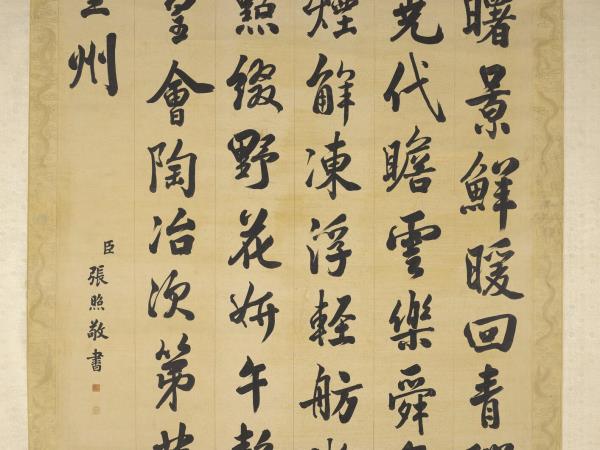 曙景鮮暖回青
堯代瞻雲樂舜
煙解凍浮輕舫
點綴野花妍午
皇會陶冶次第
州
臣張照敬書